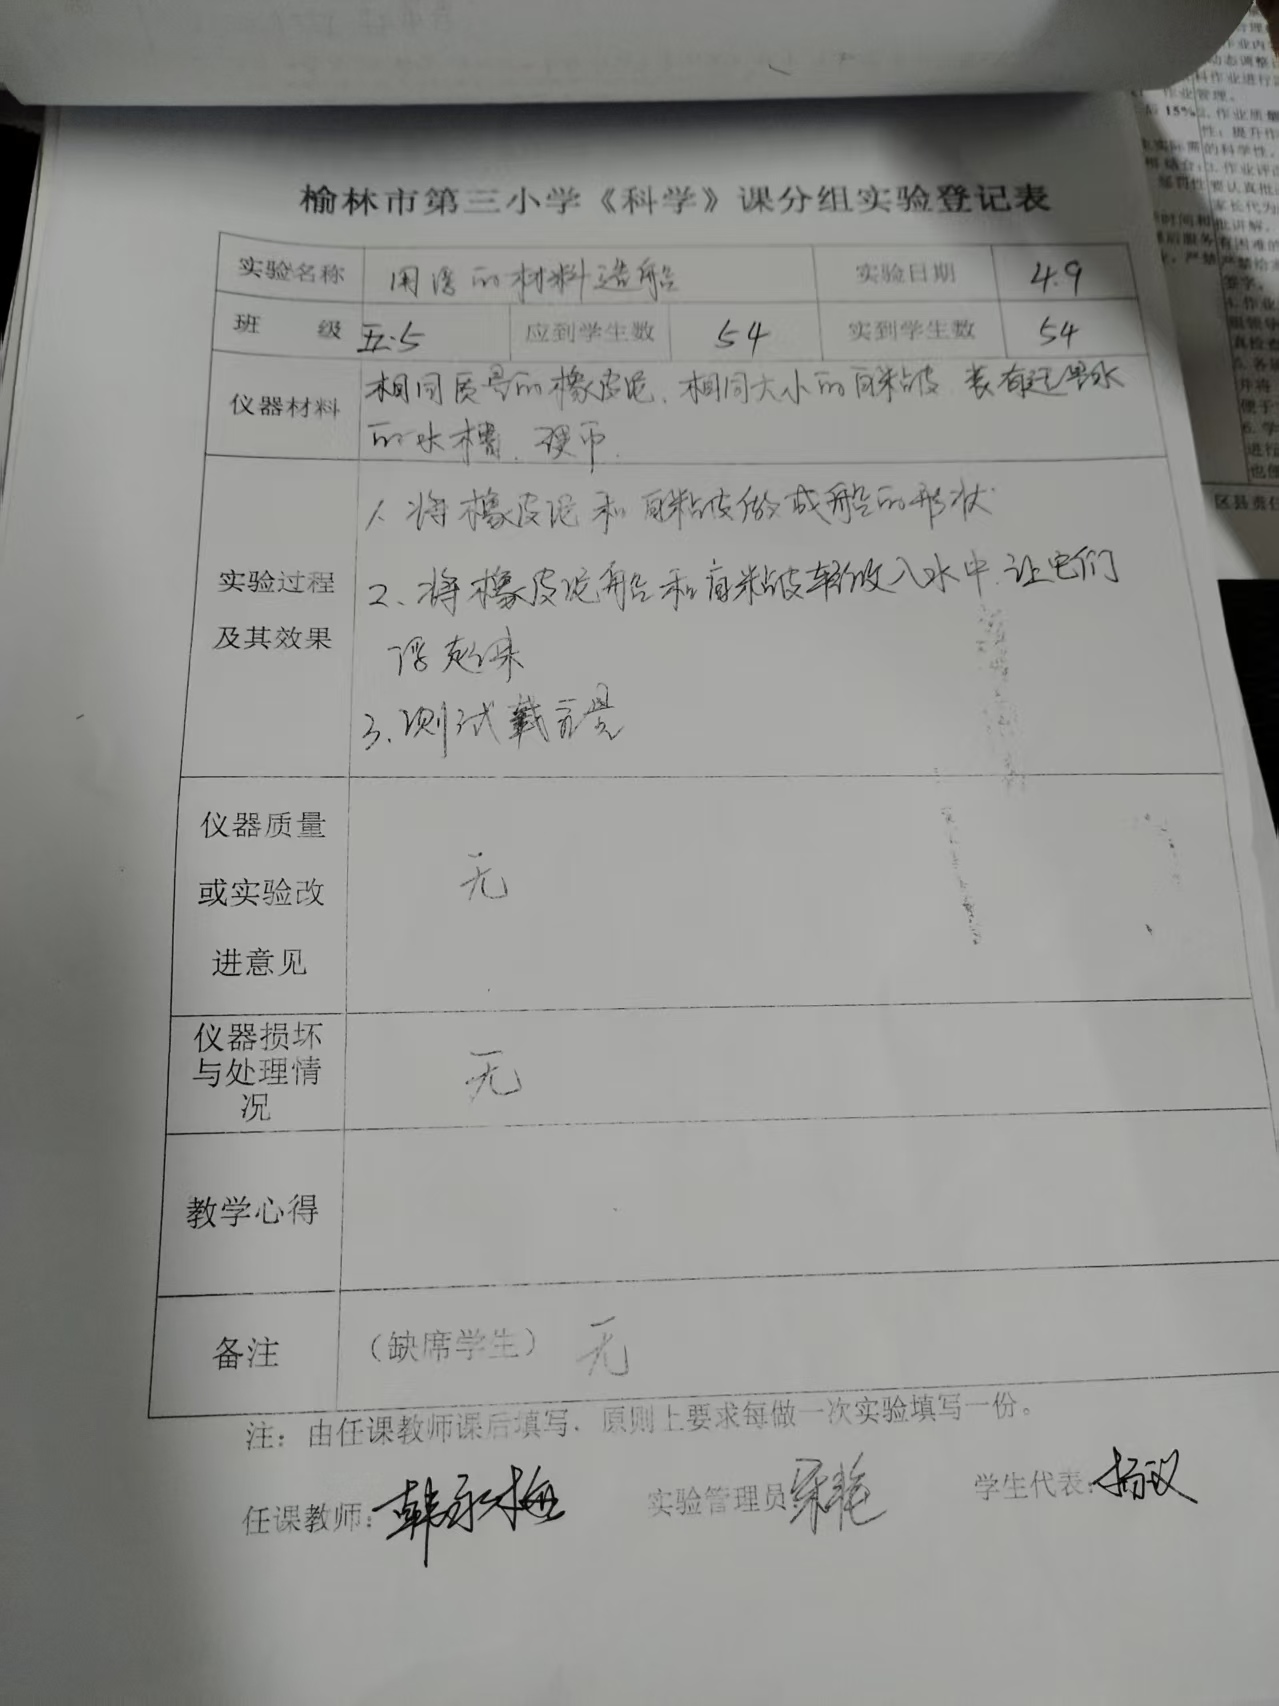 榆林市第三小学《科学》课分组实验登记表
实验名称 用浮的材料造船 实验日期 4.9
班 级 五.5 应到学生数 54 实到学生数 54
仪器材料 相同质量的橡皮泥、相同大小的自粘皮 装有适量水
的水槽、硬币.
1、将橡皮泥和自粘皮做成船的形状
实验过程
及其效果
2、将橡皮泥船和自粘皮轻放入水中.让它们
浮起来
3、测试载重量
仪器质量
或实验改
进意见
无
仪器损坏
与处理情
况
无
教学心得
备注 (缺席学生) 无
注：由任课教师课后填写．原则上要求每做一次实验填写一份。
任课教师：韩永梅 实验管理员： 学生代表：
作业管理。
15%
2.作业质量
家长代为
区县责任